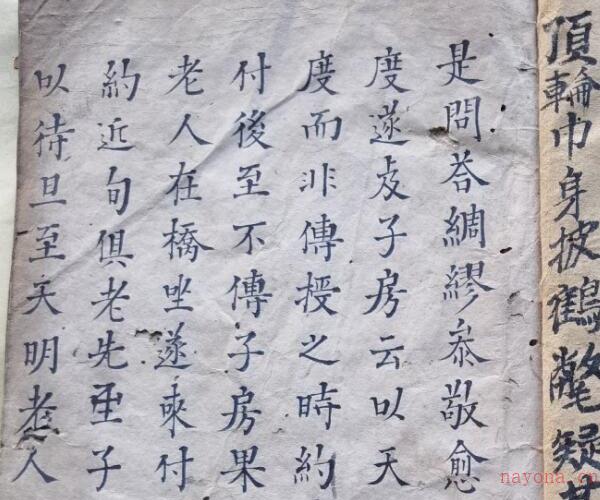 頂輪巾身披鶴氅疑
是問荅綢繆叅敬愈
度遂子房云以天
度而非傳授之時約
付後至不傳子房果
老人在橋坐遂來付
約近旬俱老先至子
以待旦至天明老人
nayona.cn